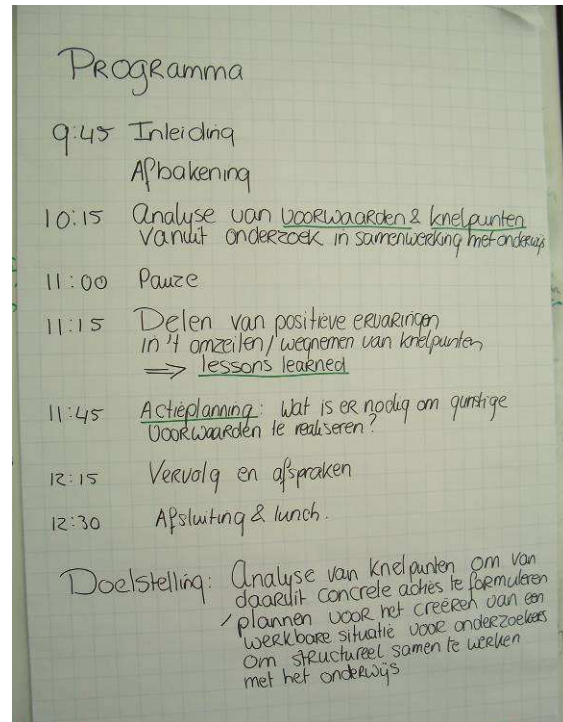 Programma
9:45 Inleiding
Afbakening
10:15 Analyse van voorwaarden & knelpunten
vanuit onderzoek in samenwerking met onderwijs
11:00 Pauze
11:15 Delen van positieve ervaringen
in 't omzeilen / wegnemen van knelpunten
⇒ lessons learned
11:45 Actieplanning: Wat is er nodig om gunstige
voorwaarden te realiseren?
12:15 Vervolg en afspraken
12:30 Afsluiting & lunch.
Doelstelling: Analyse van knelpunten om van
daaruit concrete acties te formuleren
/ plannen voor het creëren van een
werkbare situatie voor onderzoekers
om structureel samen te werken
met het onderwijs